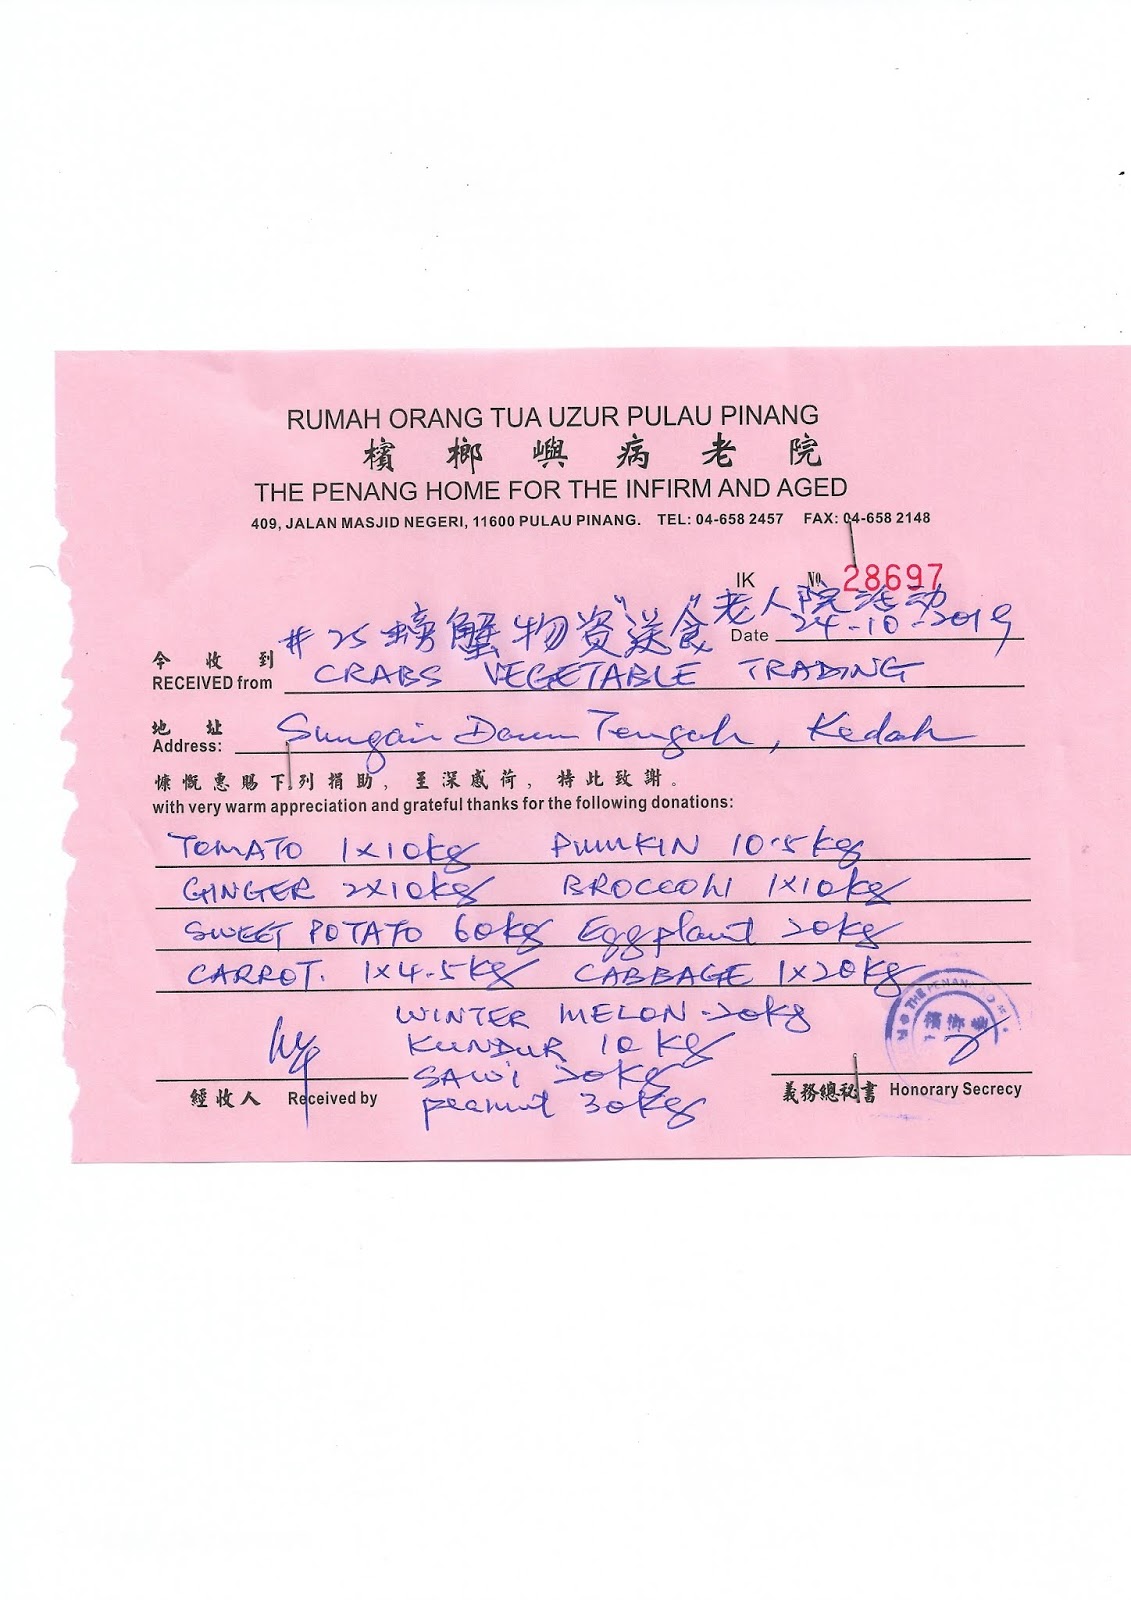 RUMAH ORANG TUA UZUR PULAU PINANG
檳榔嶼病老院
THE PENANG HOME FOR THE INFIRM AND AGED
409, JALAN MASJID NEGERI, 11600 PULAU PINANG. TEL: 04-658 2457 FAX: 04-658 2148
IK No 28697
#25 螃蟹物资"送食"老人院活动
Date 24-10-2019
今收到
RECEIVED from CRABS VEGETABLE TRADING
地址
Address: Sungai Daun Tengah, Kedah
慷慨惠賜下列捐助, 至深感荷, 特此致謝。
with very warm appreciation and grateful thanks for the following donations:
TOMATO 1x10kg PUMKIN 10.5kg
GINGER 2x10kg BROCCOLI 1x10kg
SWEET POTATO 60kg Eggplant 20kg
CARROT. 1x4.5kg CABBAGE 1x20kg
WINTER MELON-20kg
KUNDUR 10kg
SAWi 20kg
peanut 30kg
經收人 Received by
義務總秘書 Honorary Secrecy
THE PENANG HOME
檳榔嶼